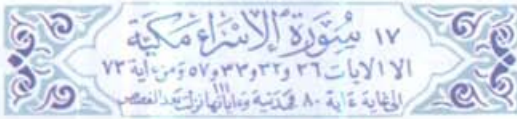 ١٧ سُورَةُ الْإِسْرَاءِ مَكِّيَّة
الا الايات ٢٦ و٣٢ و٣٣ و٥٧ ومن اية ٧٣
الى غاية ءاية ٨٠ فمدنية وءاياتها نزلت بعد القصص